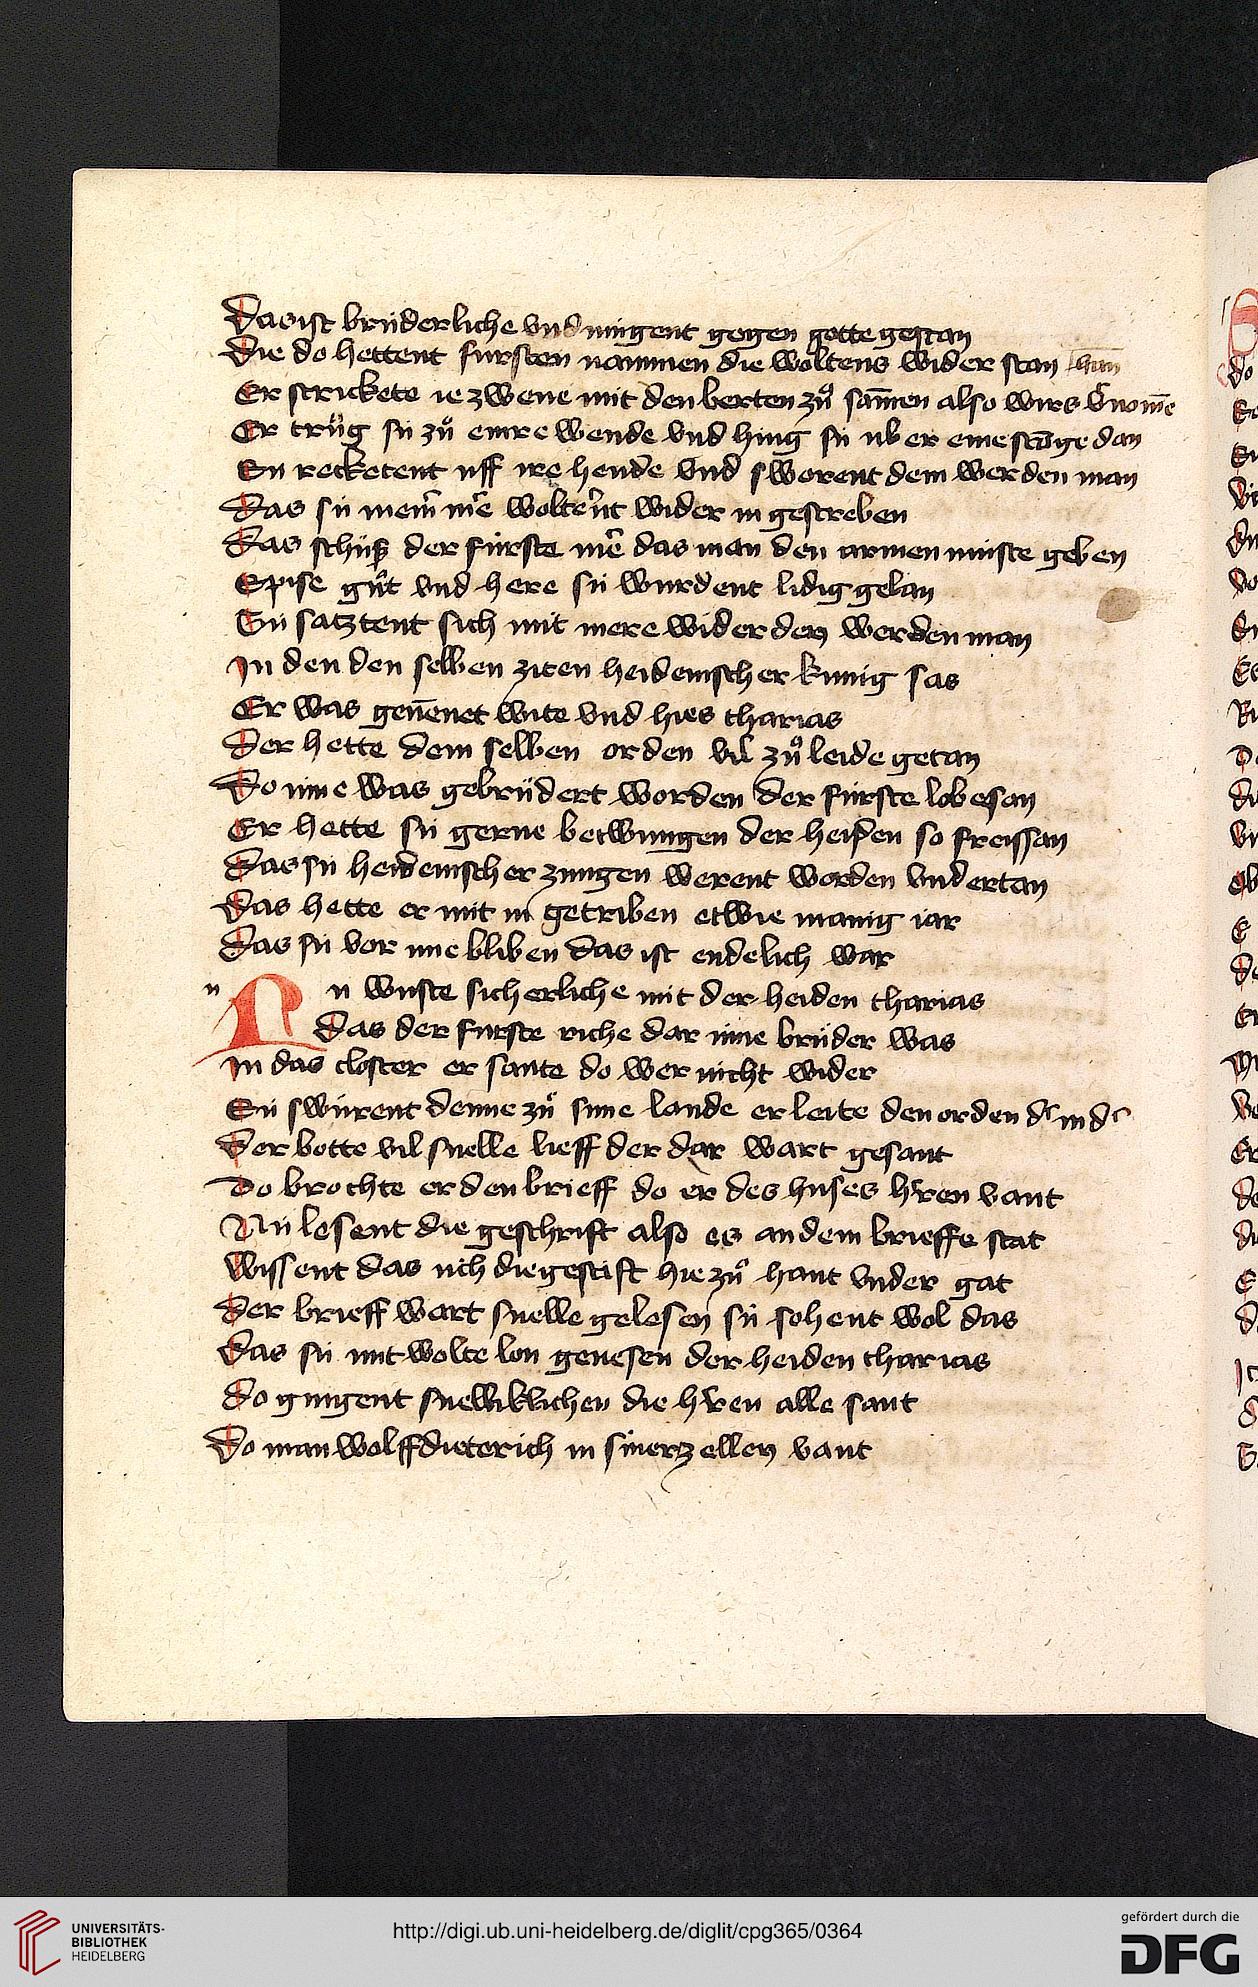 Das ist brüderliche vnd mügent gegen gotte gestan
Die do hettent fürsten nammen die woltens wider stan han
Er strickete ie zwene mit den berten zuͦ sam̄en also wirs v̓nom̄e
Er truͦg sü zuͦ einre wende vnd hing sü vber eine stāge dan
Sü recketent uff ire hende vnd sworent dem werden man
Das sü niem̄ mē wolten̄t wider in gestreben
Das schüff der fürste mē das man den armen müste geben
Spise guͦt vnd here sü wurdent lidig gelan
Sü satztent sich nüt mere wider den werden man
In den den selben ziten heidenischer künig sas
Er was gen̄enet wite vnd hies tharias
Der hette dem selben orden vil zuͦ leide getan
Do inne was gebrüdert worden der fürste lobesan
Er hette sü gerne betwungen der heiden so freissan
Das sü heidenischer zungen werent worden vndertan
Das hette er mit in getriben etwie manig iar
Das sü vor ime bliben das ist endelich war
n
Nn wuste sicherliche mit der heiden tharias
Das der fürste riche dar inne brüder was
In das closter er sante do wer nicht wider
Sü swürent denne zuͦ sime lande er leite den orden d͛nid͛
Der botte vil snelle lieff der dar wart gesant
Do brochte er den brieff do er des huses h͛ren vant
Nü lesent die geschrift also es an dem brieffe stat
Wissent das uch die gestift hie zuͦ hant vnder gat
Der brieff wart snelle gelesen sü sohent wol das
Das sü nüt wolte lon genesen der heiden tharias
Do gingent snelliklichen die h͛ren alle sant
Do man wolffdieterich in siner zellen vant
UNIVERSITÄTS-
BIBLIOTHEK
HEIDELBERG
http://digi.ub.uni-heidelberg.de/diglit/cpg365/0364
gefördert durch die
DFG